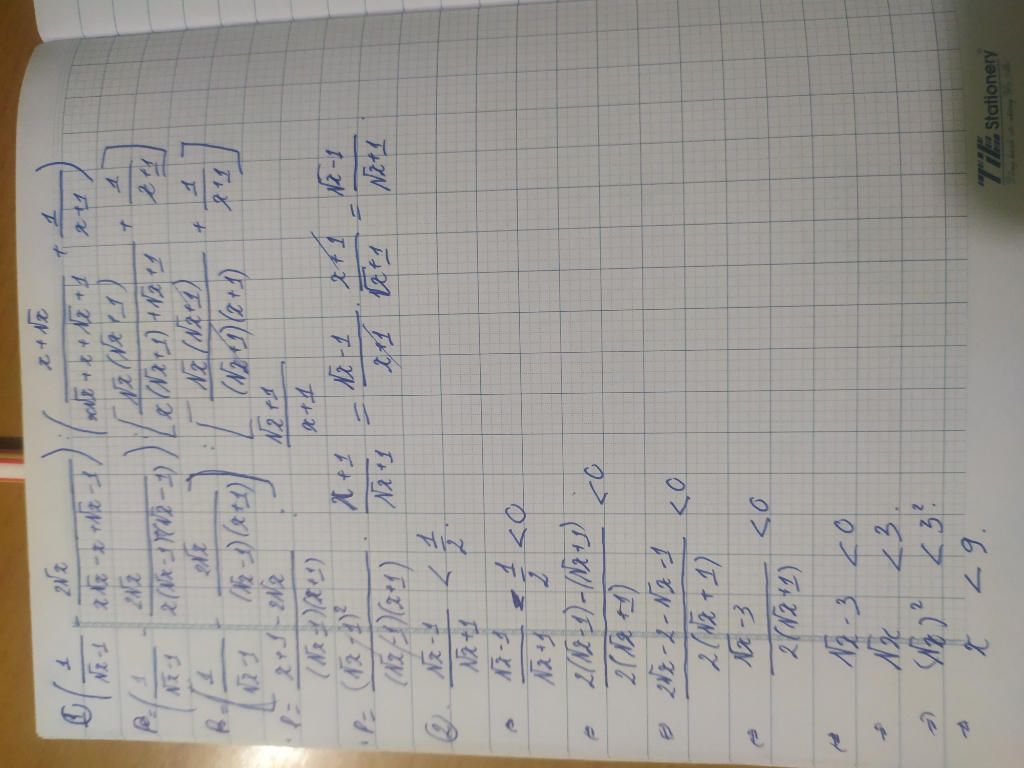 ① (1/(√x-1) - 2√x/(x√x-x+√x-1)) : ((x+√x)/(x√x+x+√x+1) + 1/(x+1))
P = (1/(√x-1) - 2√x/(x(√x-1)+√x-1)) : [√x(√x+1)/(x(√x+1)+√x+1) + 1/(x+1)]
P = (1/(√x-1) - 2√x/((√x-1)(x+1))) : [√x(√x+1)/((√x+1)(x+1)) + 1/(x+1)]
P = (x+1-2√x)/((√x-1)(x+1)) : (√x+1)/(x+1)
P = (√x-1)²/((√x-1)(x+1)) . (x+1)/(√x+1) = (√x-1)/(x+1) . (x+1)/(√x+1) = (√x-1)/(√x+1) .
②. (√x-1)/(√x+1) < 1/2 .
⇔ (√x-1)/(√x+1) - 1/2 < 0
⇔ (2(√x-1)-(√x+1))/(2(√x+1)) < 0
⇔ (2√x-2-√x-1)/(2(√x+1)) < 0
⇔ (√x-3)/(2(√x+1)) < 0
⇔ √x-3 < 0
⇒ √x < 3.
⇒ (√x)² < 3².
⇒ x < 9.
TIE Stationery